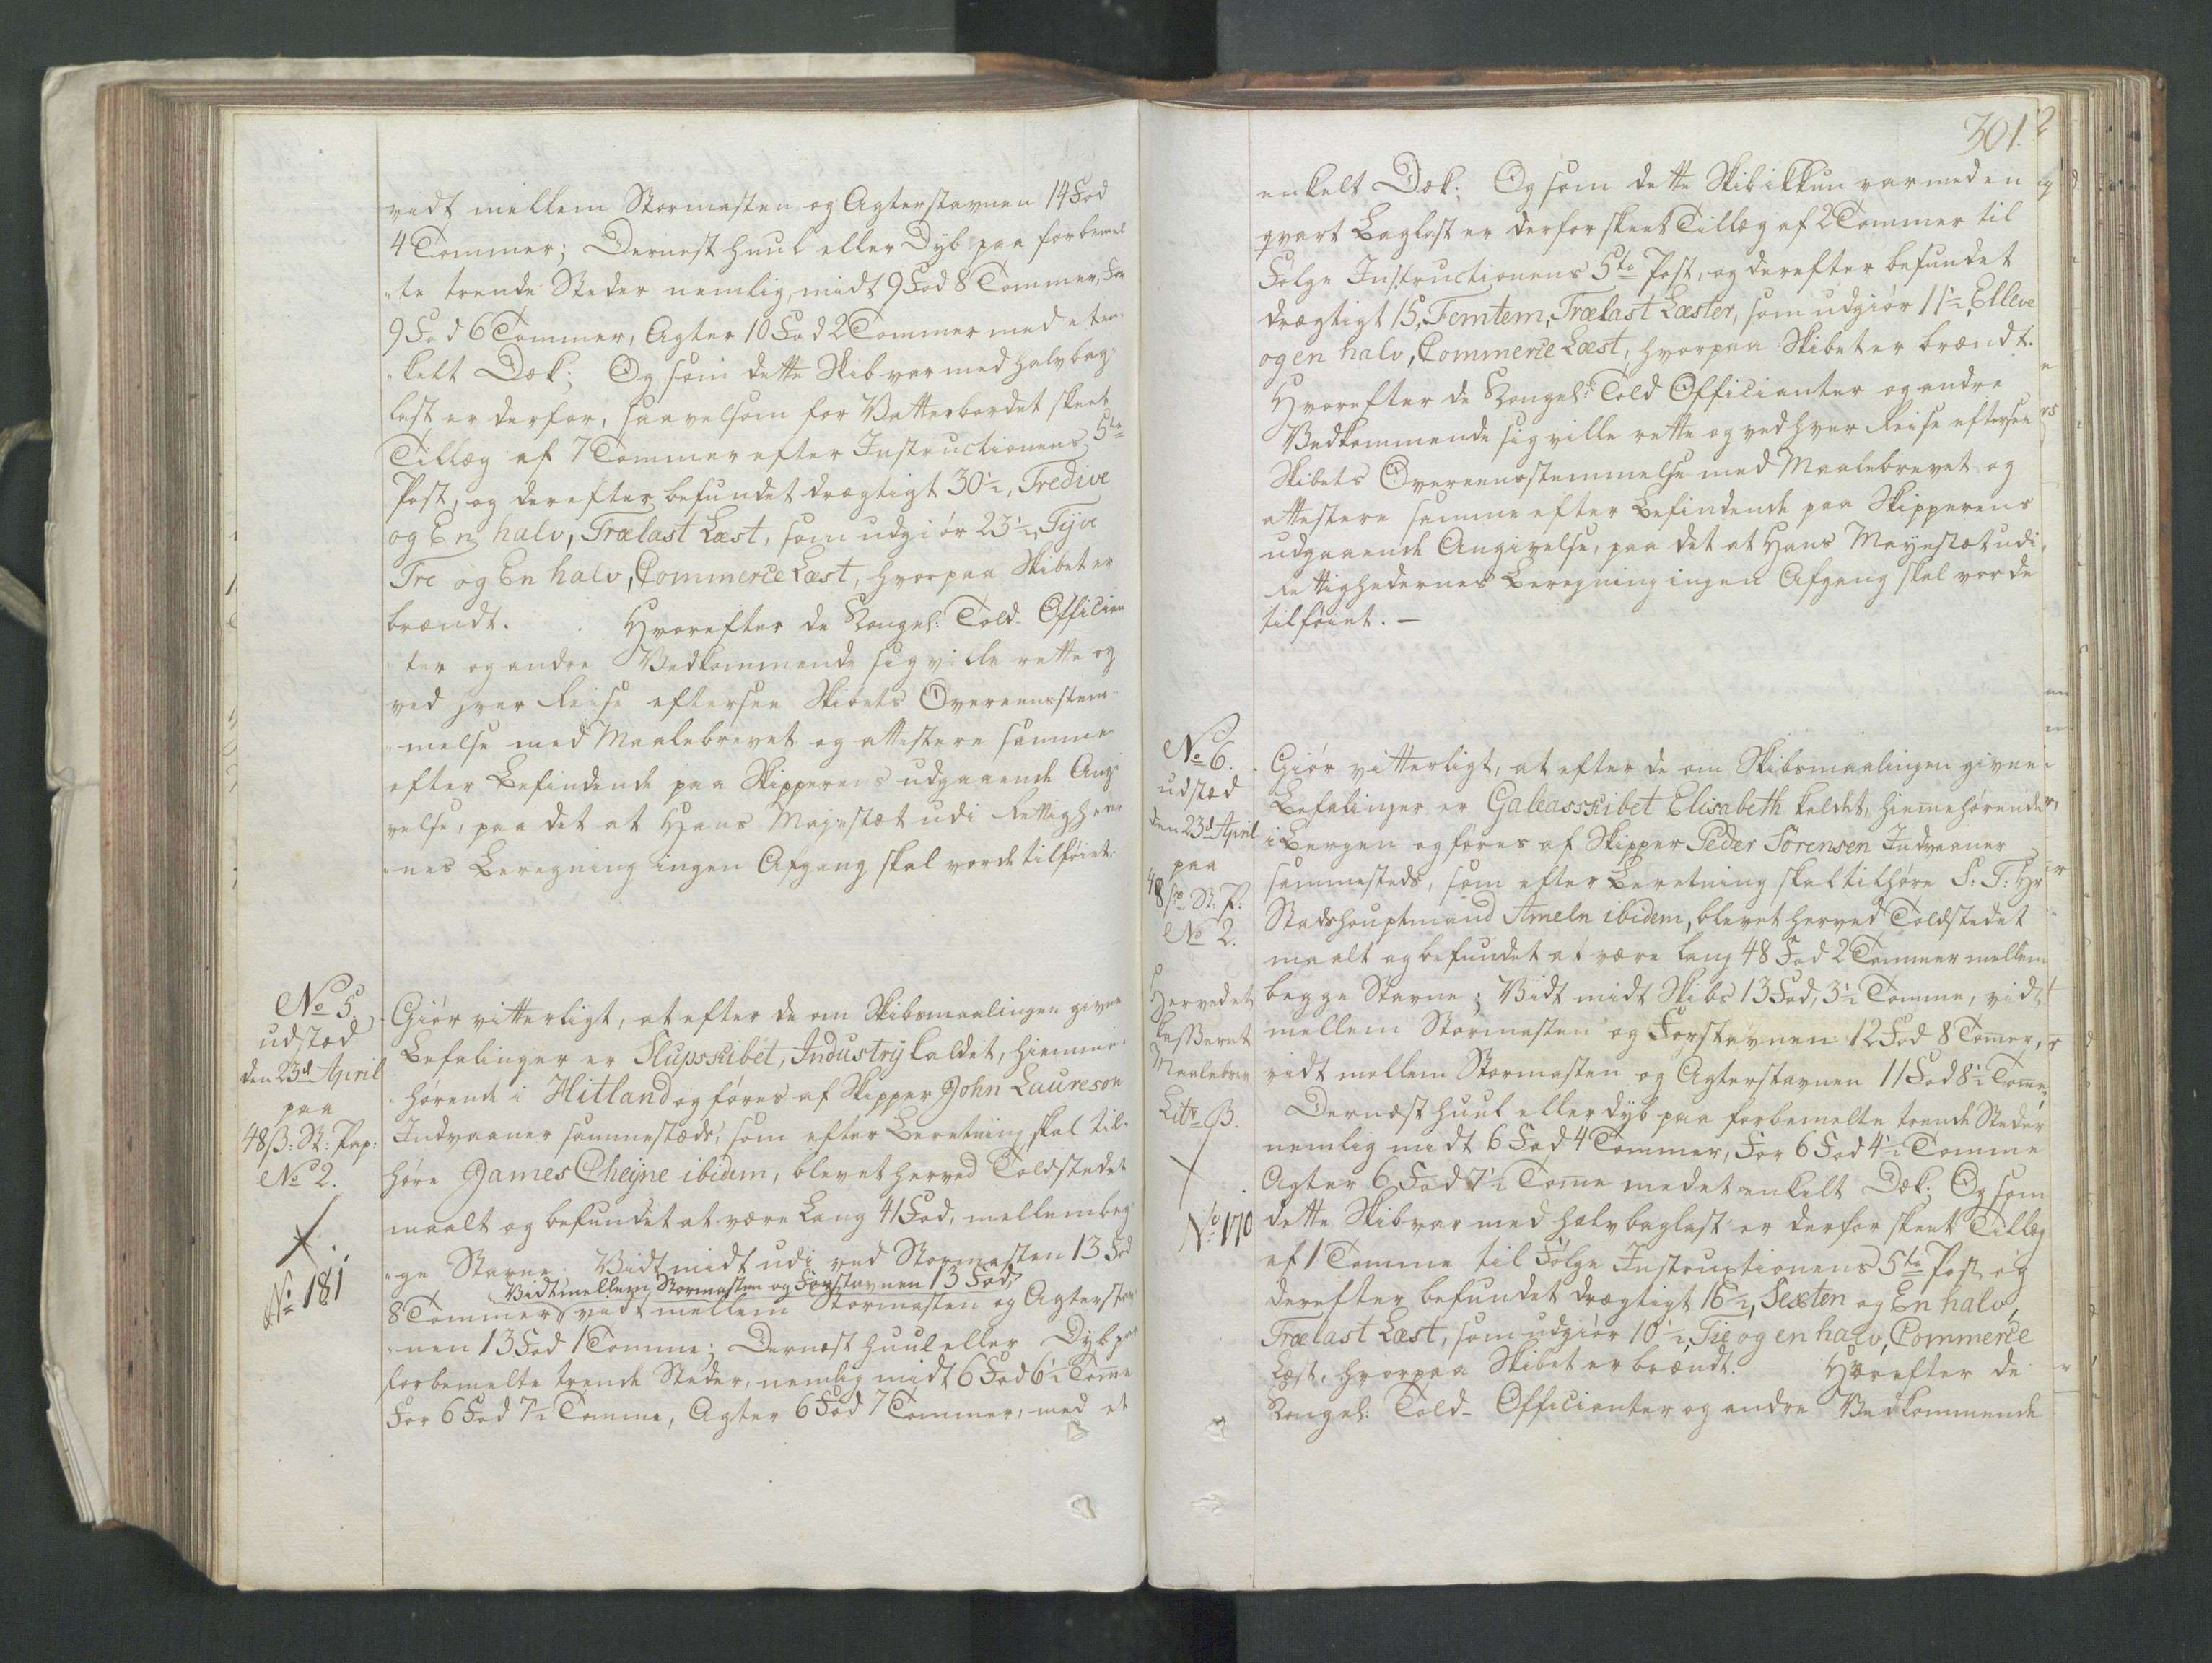 vidt mellem Stormasten og Agterstavnen 14 Fod
4 Tommer; Dernest huul eller Dyb paa forbemel
"te trende Steder nemlig, midt 9 Fod 8 Tommer, For
9 Fod 6 Tommer, Agter 10 Fod 2 Tommer med et en¬
"kelt Dæk; Og som dette Skib var med halv bag¬
last er derfor, saavelsom for Vatterbordet skeet
Tillæg af 7 Tommer efter Instructionens 5te
Post, og derefter befundet drægtigt 30½, Tredive
og En halv, Trælast Læst, som udgiør 23½, Tyve
Tre og En halv, Commerce Læst, hvorpaa Skibet er
brændt. Hvorefter de Kongel: Told- Offician
"ter og andre Vedkommende sig ville rette og
ved hver Reise eftersee Skibets Overeensstem¬
"melse med Maalebrevet og attestere samme
efter Befindende paa Skipperens udgaaende Angi
velse, paa det at Hans Majestæt udi Rettigheder
"nes Beregning ingen Afgang skal vorde tilføiet.
No 5.
udstæd
den 23de April
paa
48 ß: St: Pap:
No 2.
No 181
Giør vitterligt, at efter de om Skibsmaalingen givne
Befalinger er Slupskibet, Industrÿ kaldet, hiemme¬
"hørende i Hitland og føres af Skipper John Laureson
Indvaaner sammestæds, som efter Beretning skal til¬
høre James Cheÿne ibidem, blevet herved Toldstedet
maalt og befundet at være Lang 41 Fod, mellem beg
"ge Stavne. Vidt midt udi ved Stormasten 13 Fod
Vidt mellem Stormasten og Forstavnen 13 Fod,
8 Tommer vidt mellem Stormasten og Agterstav
"nen 13 Fod 1 Tomme; Dernæst huul eller Dyb paa
forbemelte trende Steder, nemlig midt 6 Fod 6½ Tomme
For 6 Fod 7½ Tomme, Agter 6 Fod 7 Tommer, med et
301.
enkelt Dæk; Og som dette Skib ikkun var med en
qvart Baglast er derfor skeet Tillæg af 2 Tommer til
Følge Instructionens 5te Post, og derefter befundet
drægtigt 15, Femtem, Trælast Læster, som udgiør 11½, Elleve
og en halv, Commerce Læst, hvorpaa Skibet er brændt.
Hvorefter de Kongel: Told Officianter og andre
Vedkommende sig ville rette og ved hver Reise eftersee
Skibets Overeensstemmelse med Maalebrevet og
attestere samme efter Befindende paa Skipperens
udgaaende Angivelse, paa det at Hans Mayestæt udi
Rettighedernes Beregning ingen Afgang skal vorde
tilføiet. —
No 6.
udstæd
den 23d April
paa
48 ß St: P:
No 2.
Herved et
casseret
Maalebrev
Litr B.
No 170
Giør vitterligt, at efter de om Skibsmaalingen givne
Befalinger er Galeasskibet Elisabeth kaldet, hiemehørende
i Bergen og føres af Skipper Peder Sørensen Indvaaner
sammesteds, som efter Beretning skal tilhøre S: T: Hr
Stadshauptmand Ameln ibidem, blevet herved Toldstedet
maalt og befundet at være lang 48 Fod 2 Tommer mellem
begge Stavne; Vidt midt Skibs 13 Fod, 3½ Tomme, vidt
mellem Stormasten og Forstavnen 12 Fod 8 Tomer,
vidt mellem Stormasten og Agterstavnen 11 Fod 8½ Tome,
Dernæst huul eller dyb paa forbemelte trende Steder
nemlig midt 6 Fod 4 Tommer, For 6 Fod 4½ Tomme
Agter 6 Fod 7½ Tome med et enkelt Dæk; Og som
dette Skib var med halv baglast er derfor skeet Tillæg
af 1 Tomme til Følge Instruxtionens 5te Post og
derefter befundet drægtigt 16½, Sexten og En halv,
Trælast Læst, som udgiør 10½, Tie og en halv, Commerce
Læst, hvorpaa Skibet er brændt. Hvorefter de
Kongel: Told- Officianter og andre Vedkommende